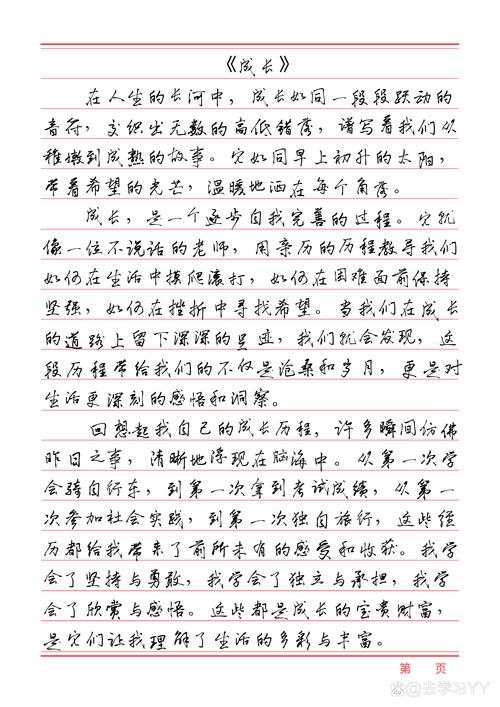 《成长》
在人生的长河中，成长如同一段段跃动的
音符，交织出无数的高低错落，谱写着我们从
稚嫩到成熟的故事。它如同早上初升的太阳，
带着希望的光芒，温暖地洒在每个角落。
成长，是一个逐步自我完善的过程。它就
像一位不说话的老师，用亲历的历程教导我们
如何在生活中摸爬滚打，如何在困难面前保持
坚强，如何在挫折中寻找希望。当我们在成长
的道路上留下深深的足迹，我们就会发现，这
段历程带给我们的不仅是沧桑和岁月，更是对
生活更深刻的感悟和洞察。
回想起我自己的成长历程，许多瞬间仿佛
昨日之事，清晰地浮现在脑海中。从第一次学
会骑自行车，到第一次拿到考试成绩，从第一
次参加社会实践，到第一次独自旅行，这些经
历都给我带来了前所未有的感受和收获。我学
会了坚持与勇敢，我学会了独立与承担，我学
会了欣赏与感悟。这些都是成长的宝贵财富，
是它们让我理解了生活的多彩与丰富。
第 页
@去学习YY